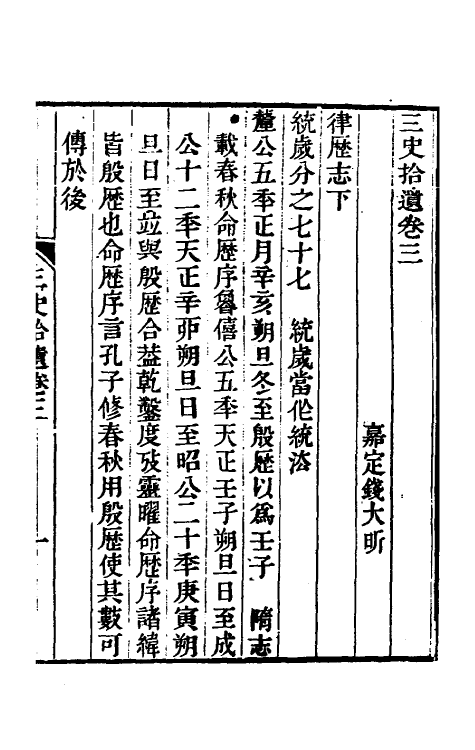 三史拾遺卷三
嘉定錢大昕
律歷志下
統歲分之七十七　統歲當作統法
釐公五年正月辛亥朔旦冬至殷歷以爲壬子　隋志
載春秋命歷序魯僖公五年天正壬子朔旦日至成
公十二年天正辛卯朔旦日至昭公二十年庚寅朔
旦日至竝與殷歷合葢乾鑿度攷靈曜命歷序諸緯
皆殷歷也命歷序言孔子修春秋用殷歷使其數可
傳於後
三史拾遺卷三
一